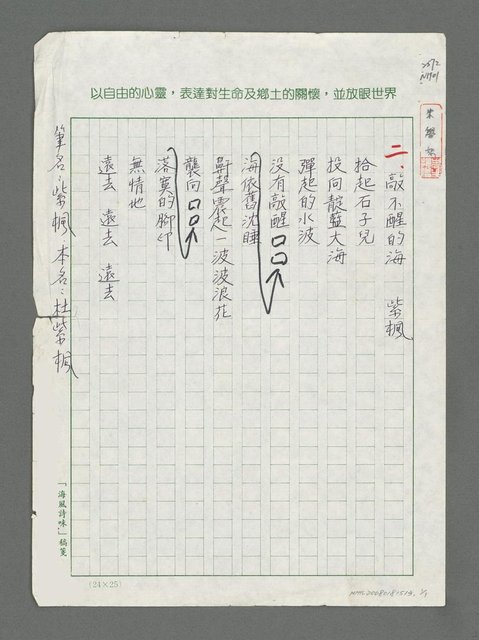 以自由的心靈，表達對生命及鄉土的關懷，並放眼世界
二、敲不醒的海　紫楓
拾起石子兒
投向靛藍大海
彈起的水波
沒有敲醒□□
海依舊沈睡
鼾聲震起一波波浪花
襲向□□
落寞的腳印
無情地
遠去　遠去　遠去
筆名：紫楓　本名：杜紫楓
「海風詩味」稿箋
(24×25)
NMTL20080181513. 1/1